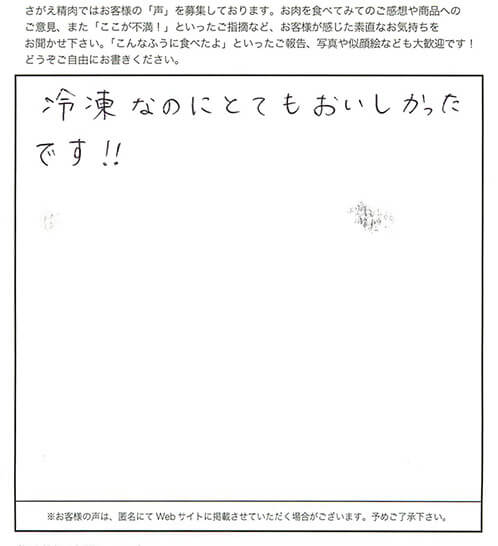 さがえ精肉ではお客様の「声」を募集しております。お肉を食べてみてのご感想や商品への
ご意見、また「ここが不満！」といったご指摘など、お客様が感じた素直なお気持ちを
お聞かせ下さい。「こんなふうに食べたよ」といったご報告、写真や似顔絵なども大歓迎です！
どうぞご自由にお書きください。
冷凍なのにとてもおいしかった
です!!
※お客様の声は、匿名にてWebサイトに掲載させていただく場合がございます。予めご了承下さい。